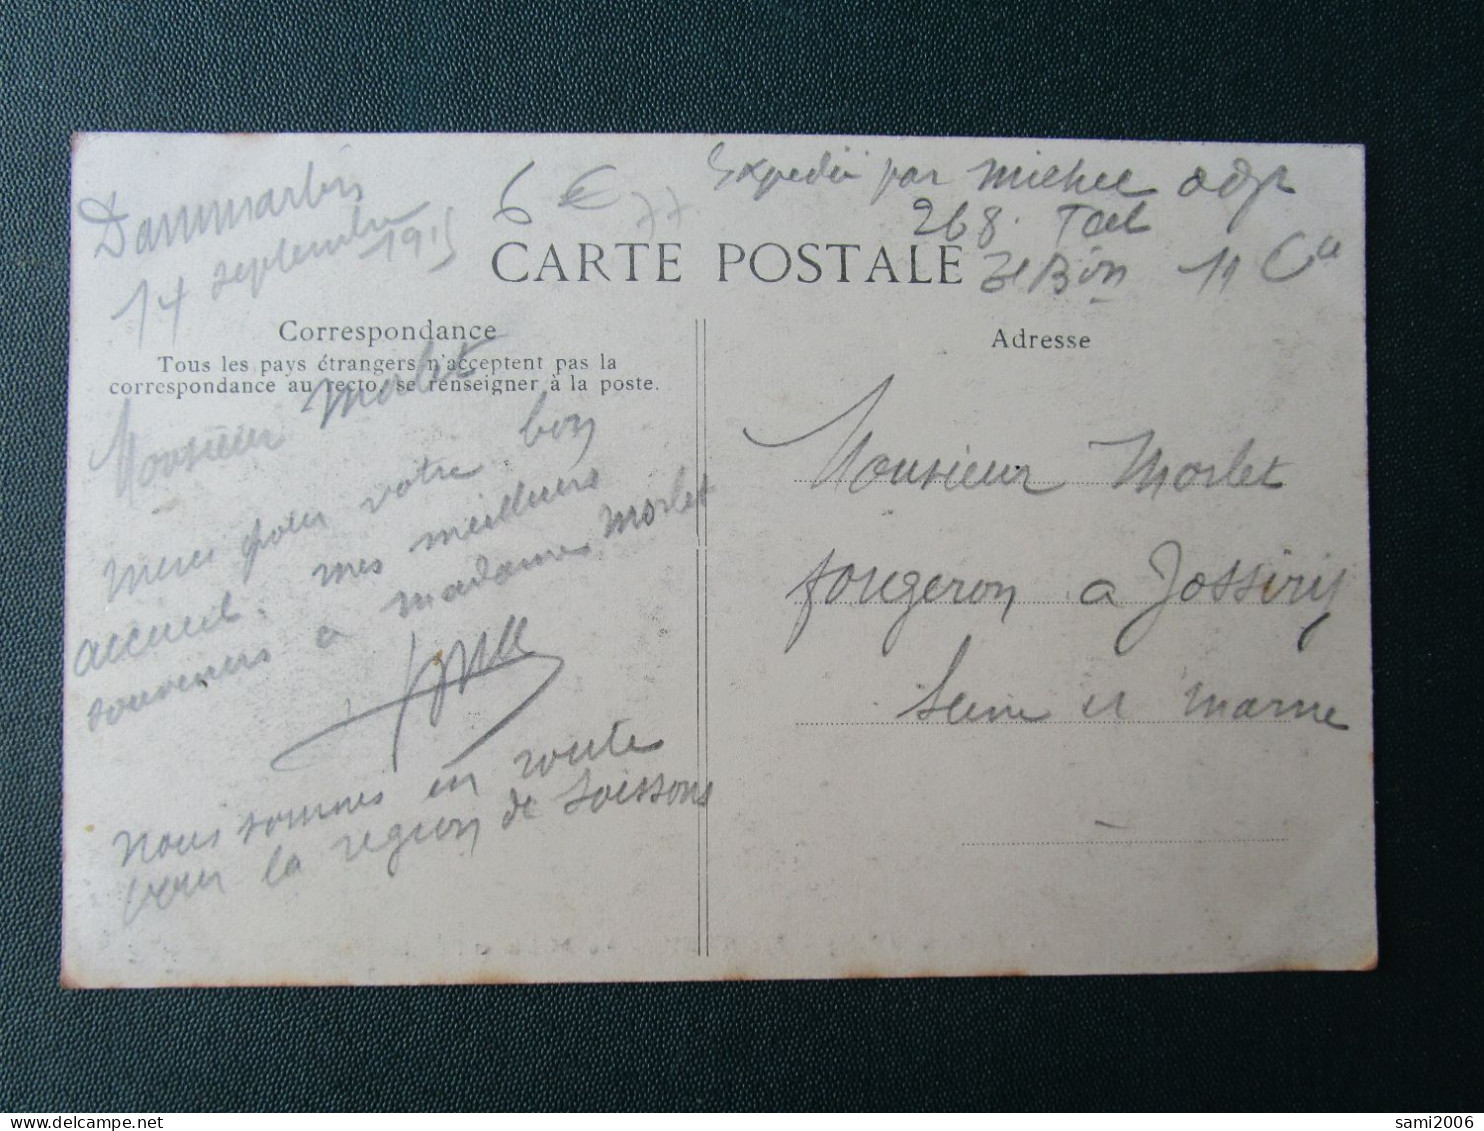 Dammartin
14 septembre
1915
6 € 77
Expediée par Michel adjt
268. Terl
3e Bon 11 Cie
CARTE POSTALE
Correspondance
Tous les pays étrangers n'acceptent pas la
correspondance au recto, se renseigner à la poste.
Adresse
Monsieur Morlet
merci pour votre bon
accueil. mes meilleurs
souvenirs a madame Morlet
nous sommes en route
pour la region de Soissons
Monsieur Morlet
forgeron a Jossiny
Seine et marne
sami2006